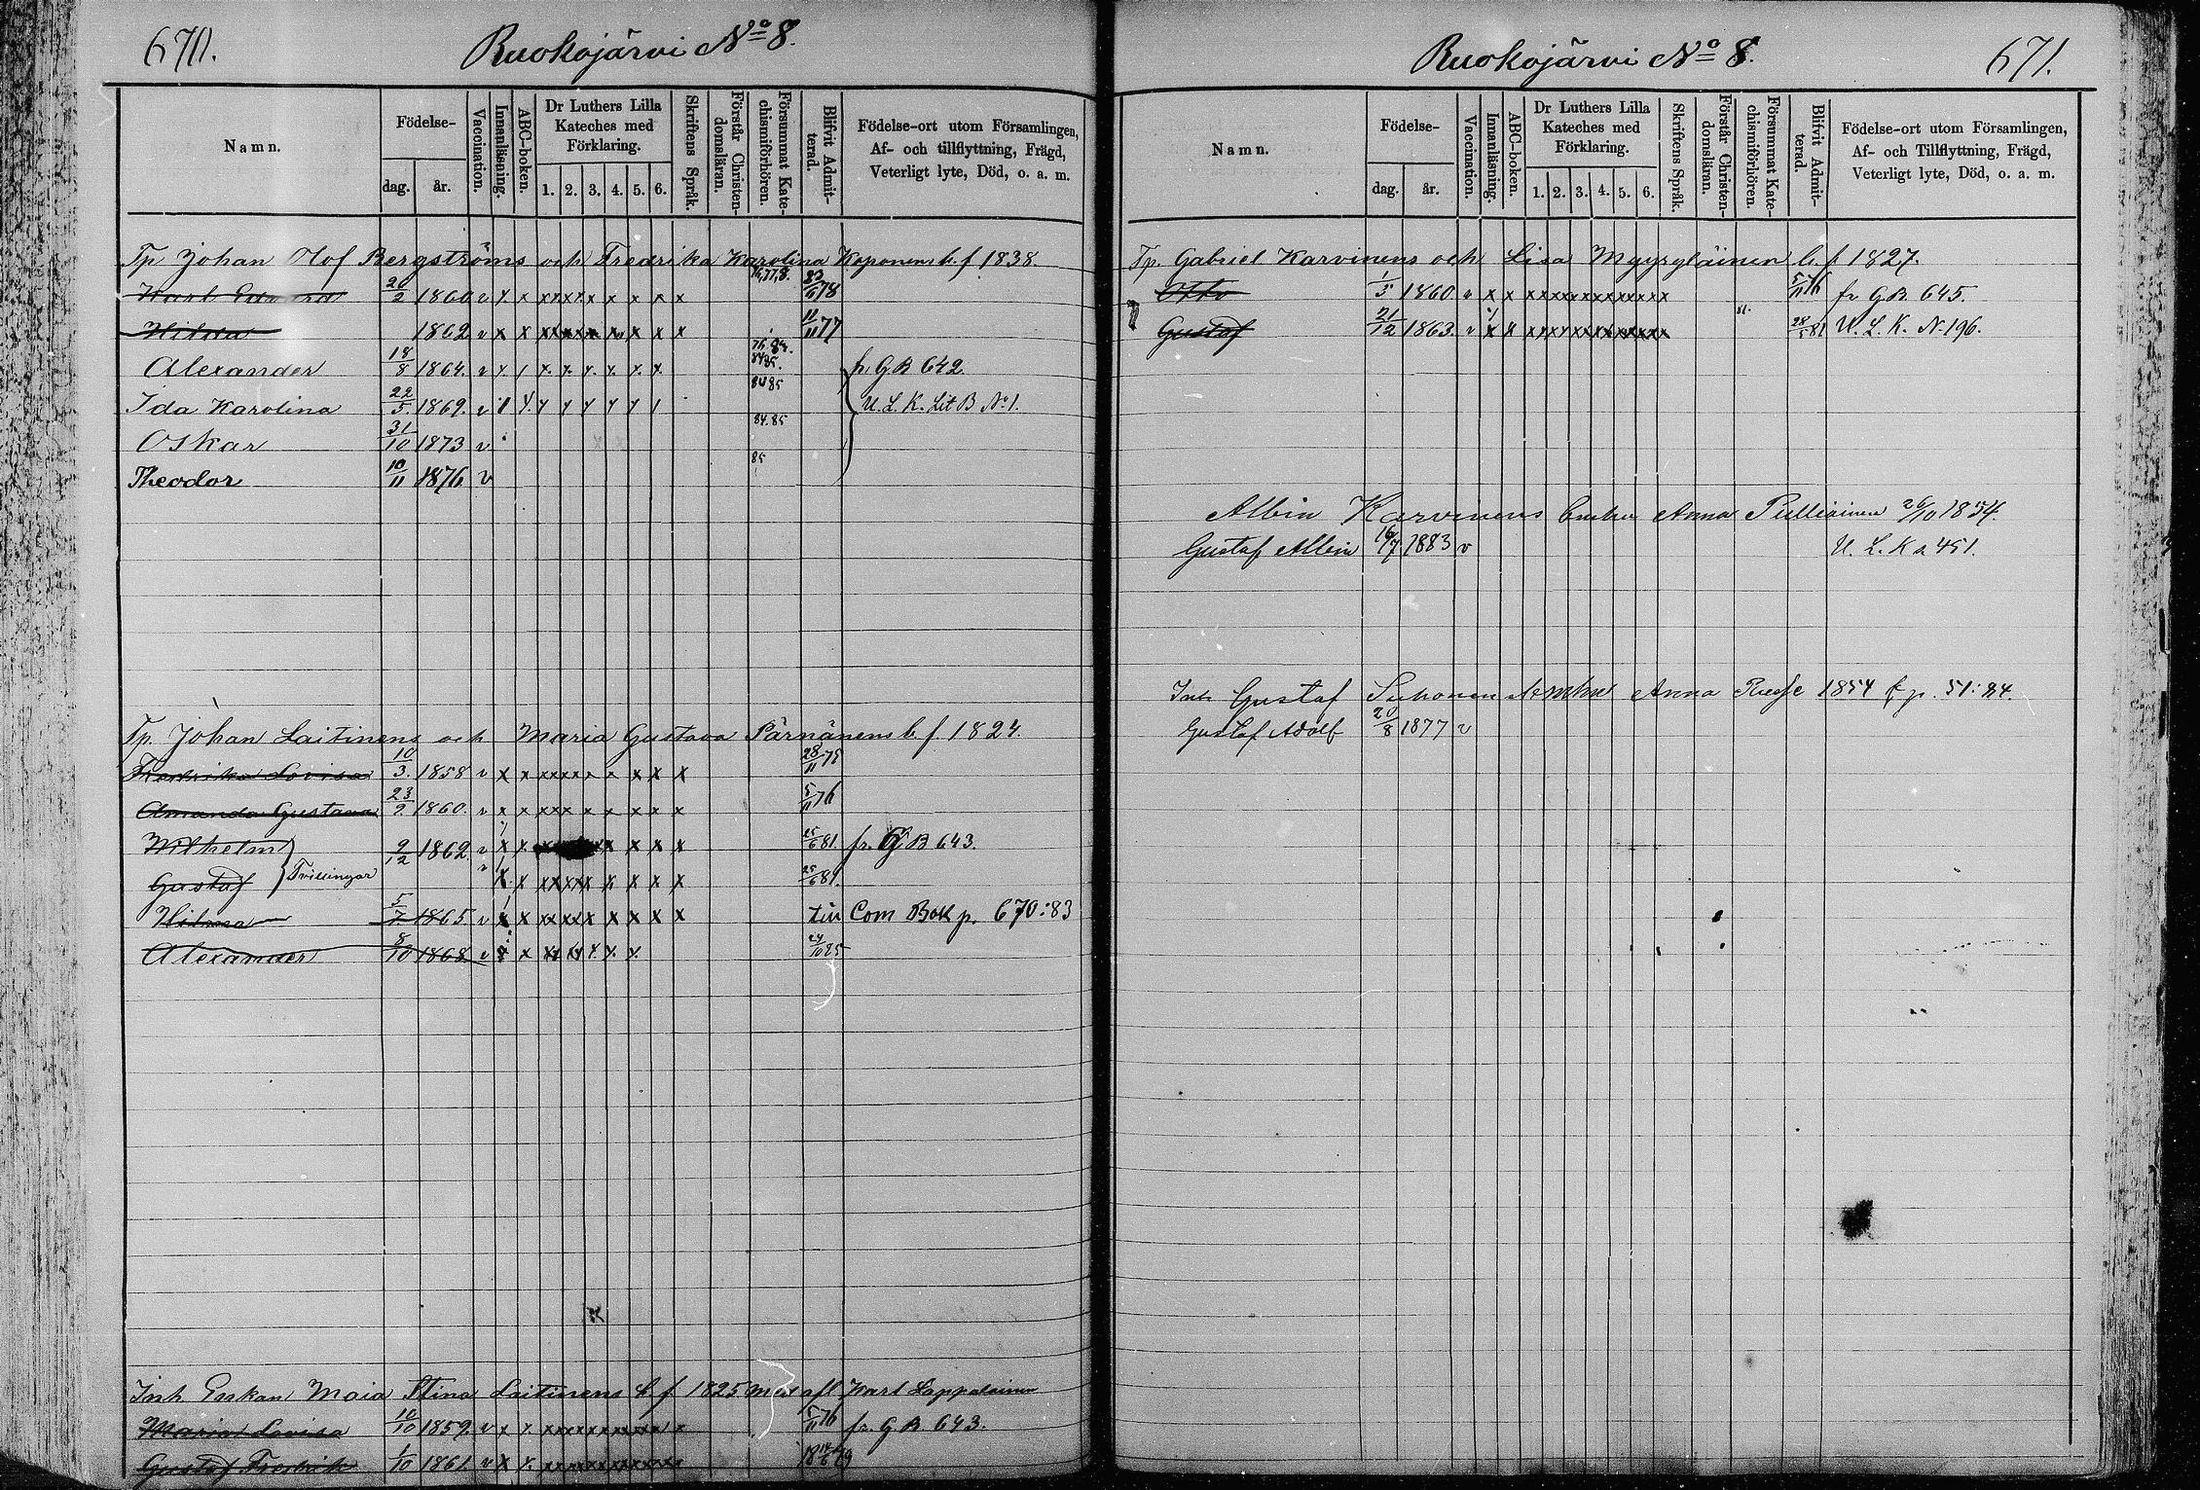 670.
Ruokojärvi No 8.
Namn.
Födelse-
dag.
år.
Vaccination.
Innanläsning.
ABC-boken.
Dr Luthers Lilla
Kateches med
Förklaring.
1. 2. 3. 4. 5. 6.
Skriftens Språk.
Förstår Christen-
domsläran.
Försummat Kate-
chismiförhören.
Blifvit Admit-
terad.
Födelse-ort utom Församlingen,
Af- och tillflyttning, Frägd,
Veterligt lyte, Död, o. a. m.
Tp Johan Olof Bergströms och Fredrika Karolina Koponens b. f 1838.
Karl Edvard 2 1860 v x x x x x x x x x x 78
Hilma 1862 v x x x x x x x x x x 11/11 77
Alexander 18/8 1864. v fr. G B 642
Ida Karolina 22/5 1869. v 84 85 U. L. K. Lit B No 1.
Oskar 31/10 1873 v 84. 85
Theodor 10/11 1876 v 85
Tp. Johan Laitinens och Maria Gustava Pärnänens b. f. 1824.
Fredrika Lovisa 10/3. 1858 v x x x x x x x x x x 28/11 75
Amanda Gustava 23/9 1860. v x x x x x x x x x x 5/11 76
Wilhelm 9/12 1862 v 25/6 81. fr. G B 643.
Gustaf Tvillingar v 25/6 81.
Hilma 5/7 1865 v Com Bok p. 670:83
Alexander 8/10 1868 v 24/10 85
Inh. Enkan Maia Stina Laitinens b f 1825 med afl Karl Lappalainen
Maria Lovisa 10/10 1859 v 5/11 76 fr. G B. 643.
Gustaf Fredrik 1/10 1861 v
Ruokojärvi No 8.
671.
Namn.
Födelse-
dag.
år.
Vaccination.
Innanläsning.
ABC-boken.
Dr Luthers Lilla
Kateches med
Förklaring.
1. 2. 3. 4. 5. 6.
Skriftens Språk.
Förstår Christen-
domsläran.
Försummat Kate-
chismiförhören.
Blifvit Admit-
terad.
Födelse-ort utom Församlingen,
Af- och Tillflyttning, Frägd,
Veterligt lyte, Död, o. a. m.
Tp. Gabriel Karvinens och Lisa Myyryläinen b. f 1827.
Otto 1/5 1860 v 5/11 76 fr G B. 645.
Gustaf 21/12 1863. v 28/5 81 U. L. K. N. 196.
Albin Karvinens Anna Pulliainen 26/10 1854.
Gustaf Albin 16/7 1883 v U. L. K a 451.
Inh Gustaf Suhonen Anna 1854 p. 51:84.
Gustaf Adolf 20/8 1877 v